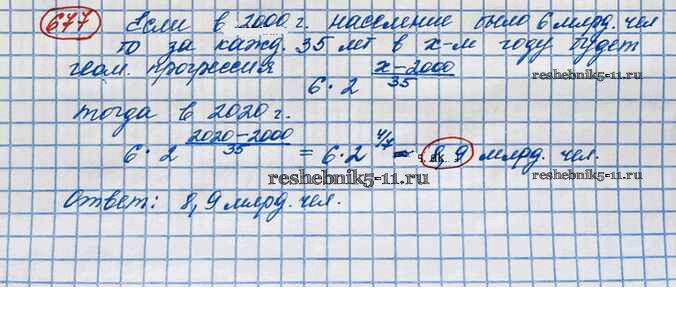 677 Если в 2000 г. население было 6 млрд. чел
то за кажд. 35 лет в х-м году будет
геом. прогрессия 6 · 2^(x-2000)/35
reshebnik5-11.ru
тогда в 2020 г.
6 · 2^(2020-2000)/35 = 6 · 2^4/7 = 8,9 млрд. чел.
reshebnik5-11.ru
reshebnik5-11.ru
Ответ: 8,9 млрд. чел.